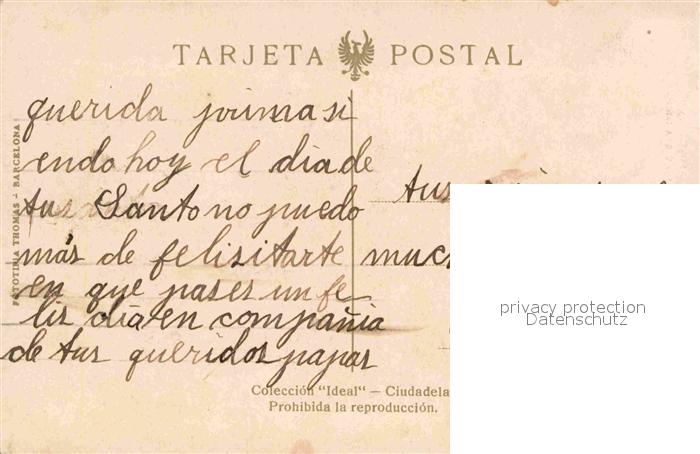 TARJETA POSTAL
querida prima si
endo hoy el dia de
tus Santo no puedo
más de felisitarte muc
en que pases un fe
lis dia en compañia
de tus queridos papas
tus
FOTOTIPIA THOMAS - BARCELONA
privacy protection
Datenschutz
Colección "Ideal" — Ciudadela
Prohibida la reproducción.